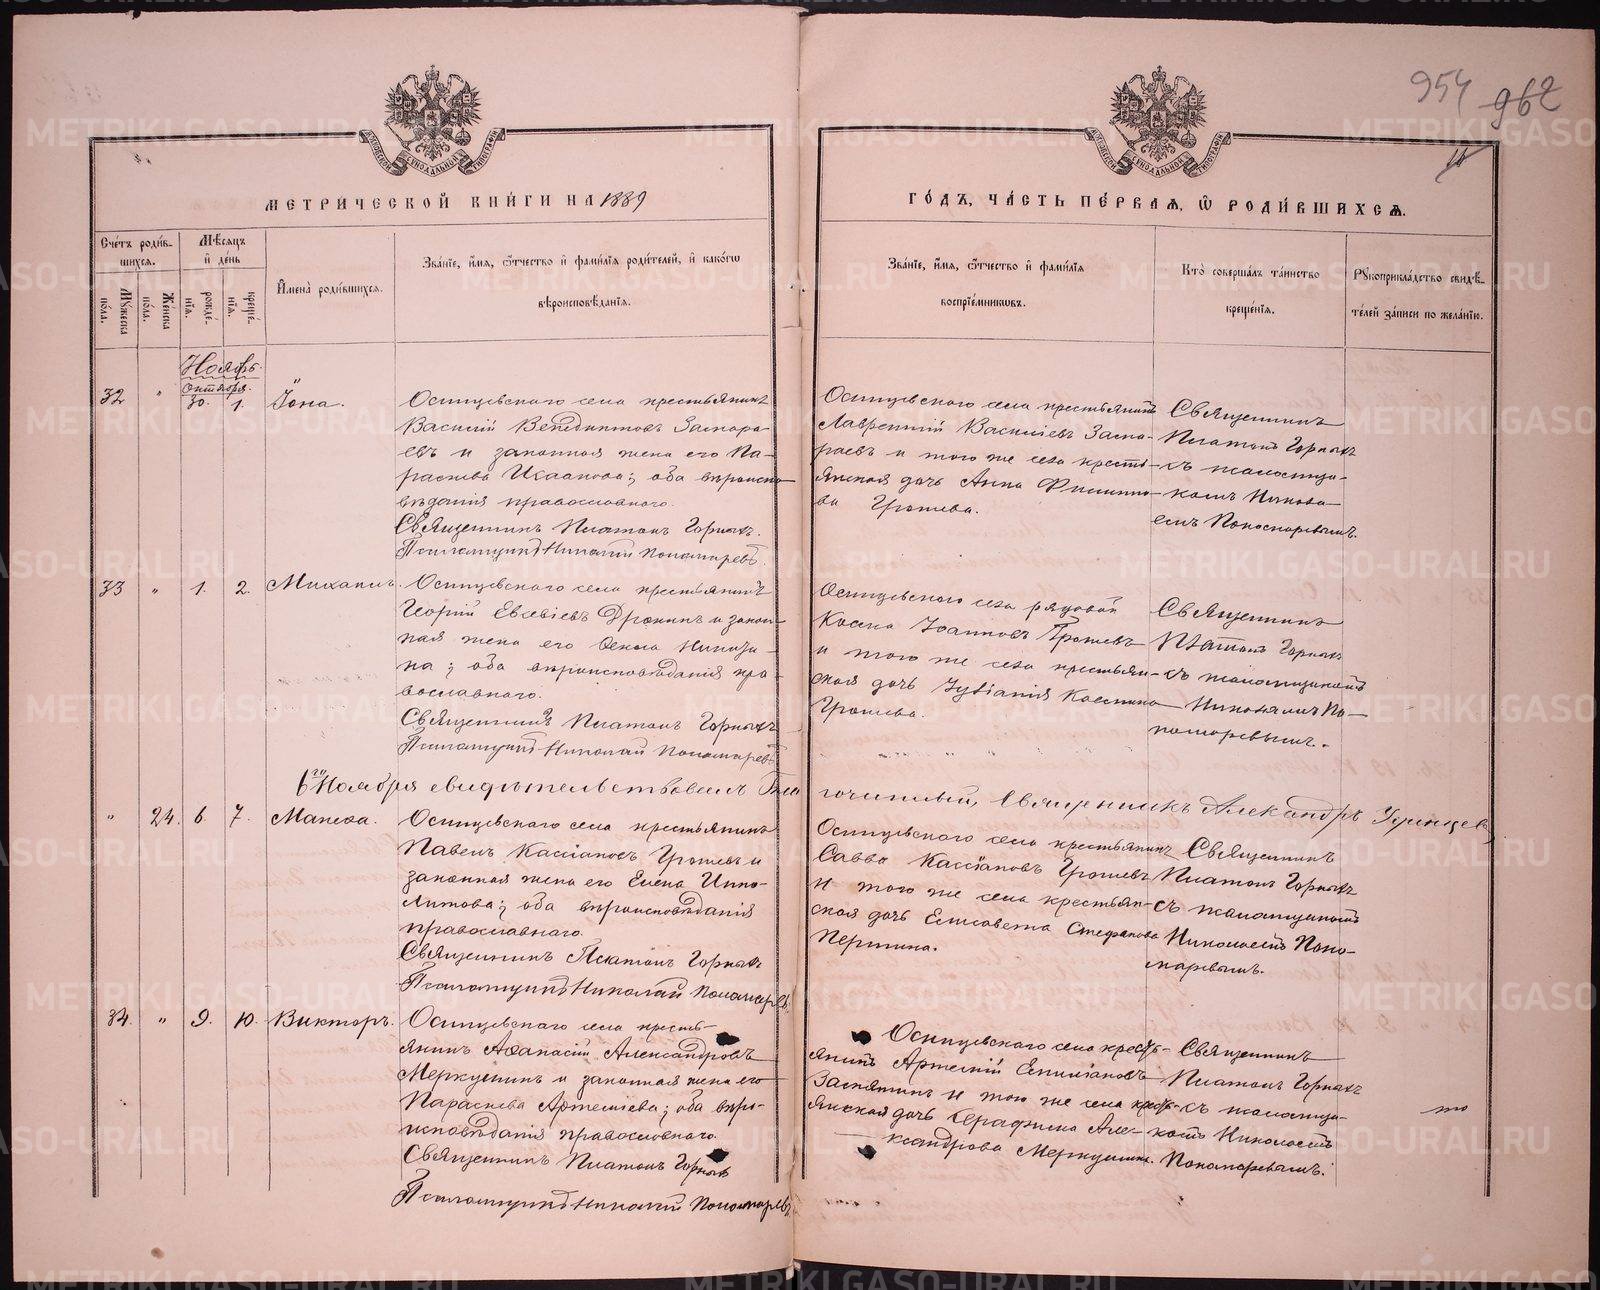 954 962
МЕТРИЧЕСКОЙ КНИГИ НА 1889
ГОДЪ, ЧАСТЬ ПЕРВАЯ, Ѡ РОДИВШИХСЯ.
Счетъ родив-
шихся.
Мѣсяцъ
и день
Мужеска
пола.
Женска
пола.
рожде-
нія.
креще-
нія.
Имена родившихся.
Званіе, имя, отчество и фамилія родителей, и какогѡ
вѣроисповѣданія.
Званіе, имя, отчество и фамилія
воспріемниковъ.
Кто совершалъ таинство
крещенія.
Рукоприкладство свидѣ-
телей записи по желанію.
Ноябрь.
Октября
32 " 30. 1. Іона.
Осинцевскаго села крестьянинъ
Василій Венедиктовъ Заспора-
евъ и законная жена его Па-
раскева Исаакова; оба вѣроиспо-
вѣданія православнаго.
Священникъ Платонъ Горныхъ.
Псаломщикъ Николай Пономаревъ.
Осинцевскаго села крестьянинъ
Лаврентій Васильевъ
и того же села кресть-
янская дочь Анна Филиппо-
ва Грошева.
Священникъ
Платонъ Горныхъ
съ псаломщи-
комъ Никола-
емъ Пономаревымъ.
33 " 1. 2. Михаилъ.
Осинцевскаго села крестьянинъ
Георгій Евсевіевъ Дронинъ и закон-
ная жена его Ѳекла Никити-
на; оба вѣроисповѣданія пра-
вославнаго.
Священникъ Платонъ Горныхъ
Псаломщикъ Николай Пономаревъ
Осинцевскаго села рядовой
Косма Іоанновъ Грошевъ
и того же села крестьян-
ская дочь Іуліанія Космина
Грошева.
Священникъ
Платонъ Горныхъ
съ псаломщикомъ
Николаемъ По-
номаревымъ.
6го Ноября свидѣтельствовалъ Благочинный, Священникъ Александръ
" 24. 6. 7. Матрона.
Осинцевскаго села крестьянинъ
Павелъ Кассіановъ Грошевъ и
законная жена его Елена Иппо-
литова; оба вѣроисповѣданія
православнаго.
Священникъ Платонъ Горныхъ
Псаломщикъ Николай Пономаревъ.
Осинцевскаго села крестьянинъ
Савва Кассіановъ Грошевъ
и того же села крестьян-
ская дочь Елисавета Стефанова
Першина.
Священникъ
Платонъ Горныхъ
съ псаломщикомъ
Николаемъ Поно-
маревымъ.
34. " 9. 10. Викторъ.
Осинцевскаго села кресть-
янинъ Аѳанасій Александровъ
Меркушинъ и законная жена его
Параскева Артеміева; оба вѣро-
исповѣданія православнаго.
Священникъ Платонъ Горныхъ
Псаломщикъ Николай Пономаревъ.
Осинцевскаго села кресть-
янинъ Артемій
и того же села кресть-
янская дочь Серафима Але-
ксандрова Меркушина.
Священникъ
Платонъ Горныхъ
съ псаломщи-
комъ Николаемъ
Пономаревымъ.